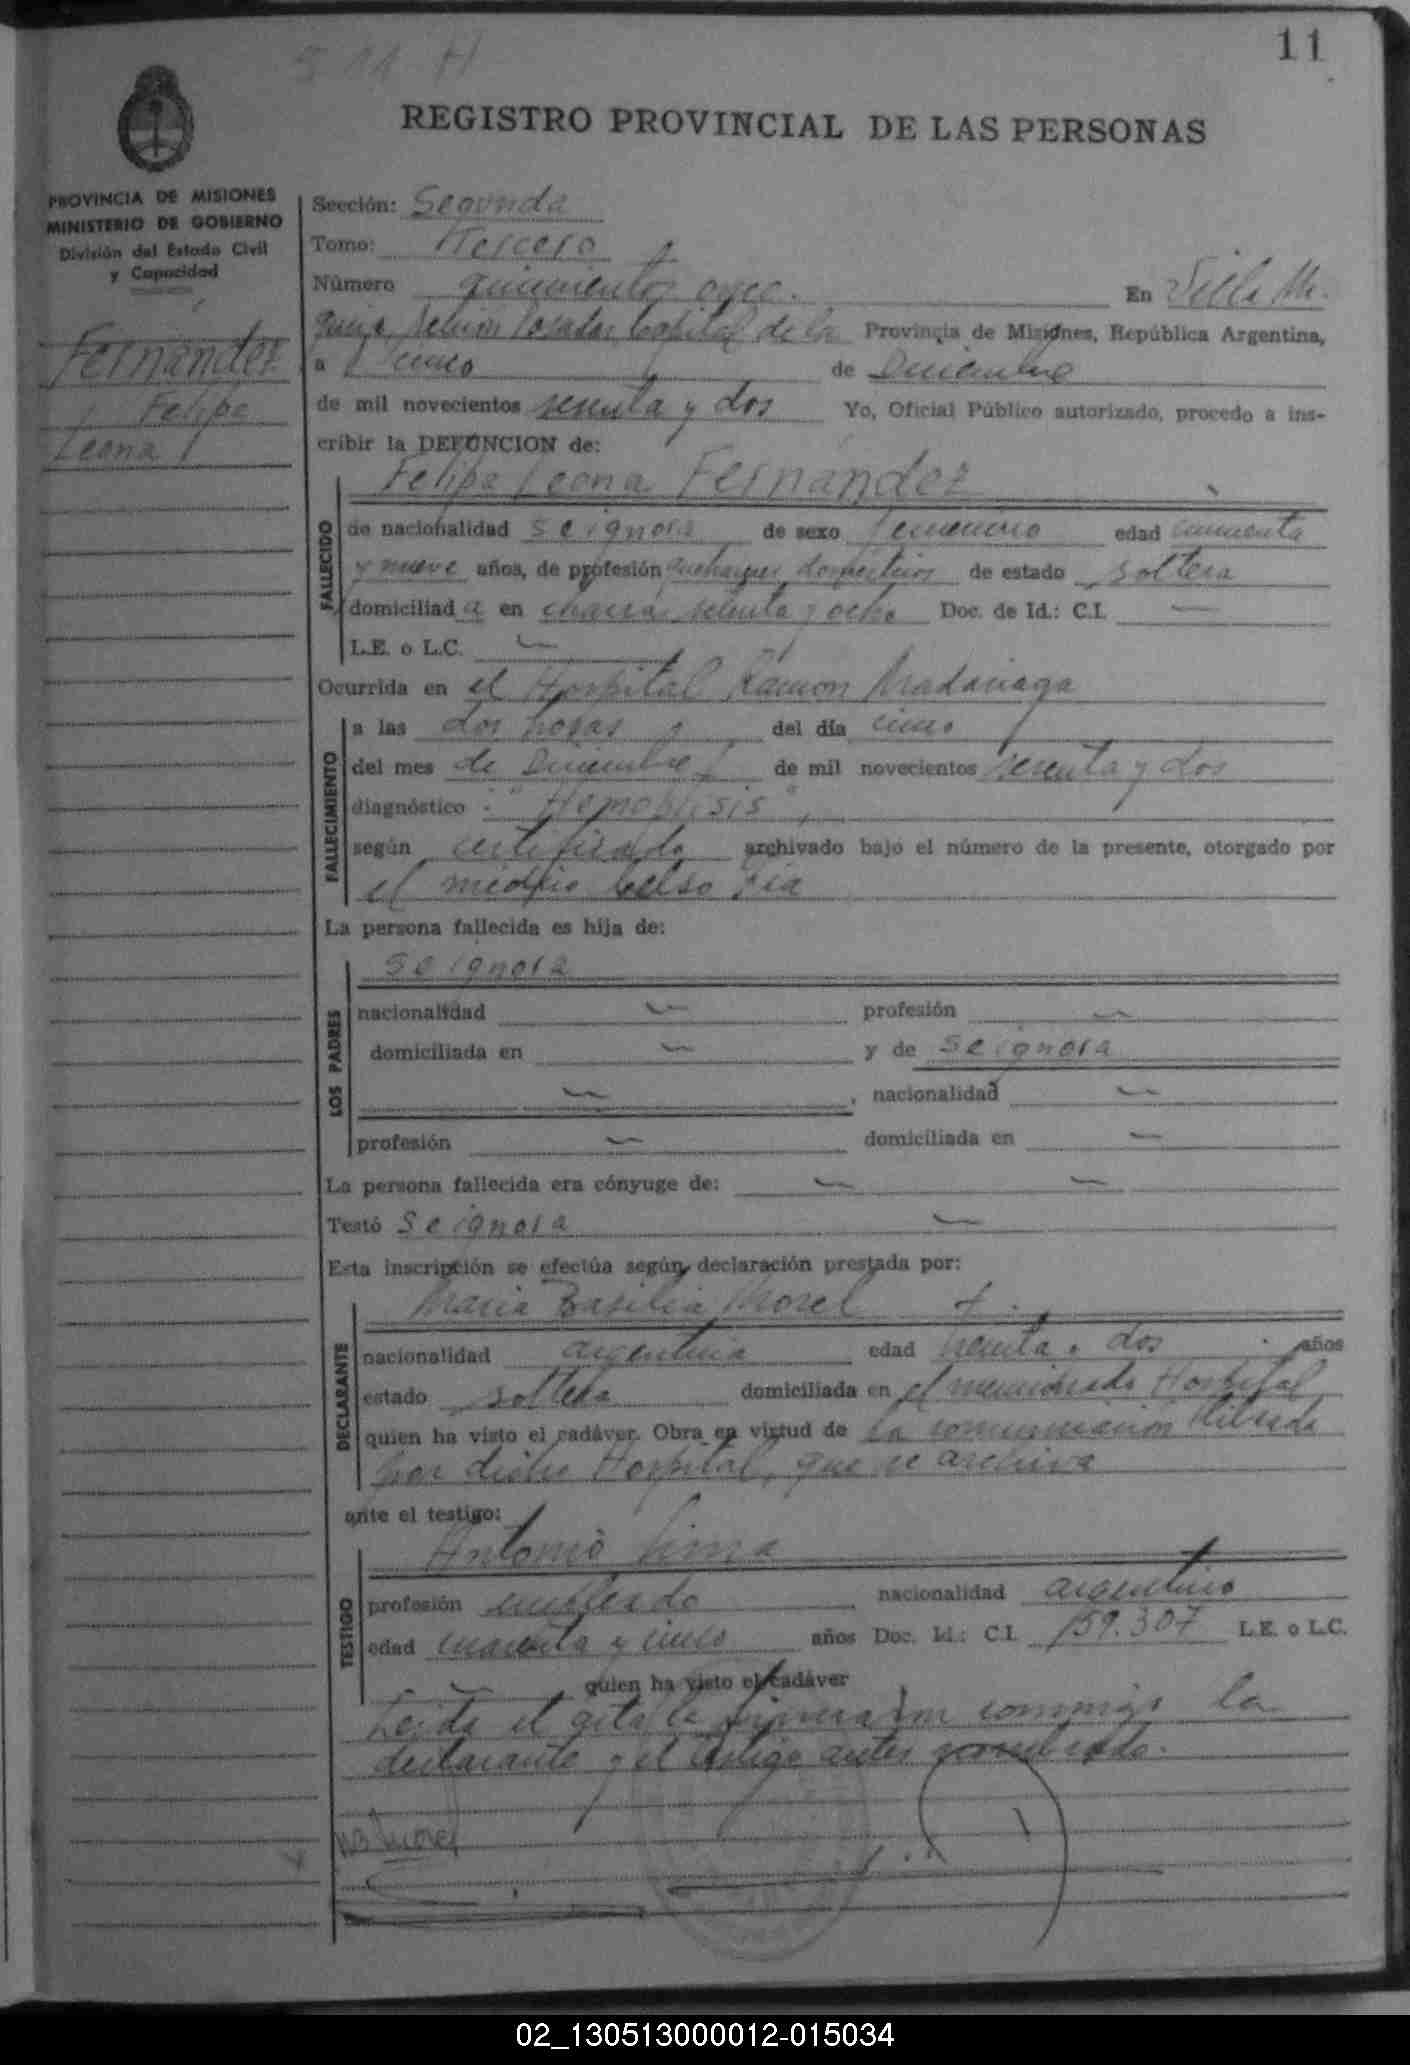 511 H
11
REGISTRO PROVINCIAL DE LAS PERSONAS
PROVINCIA DE MISIONES
MINISTERIO DE GOBIERNO
División del Estado Civil
y Capacidad
Fernandez
Felipa
Leona
Sección: Segunda
Tomo: Tercero
Número quinientos once. En Villa
Posadas Capital de la Provincia de Misiones, República Argentina,
a cinco de Diciembre
de mil novecientos sesenta y dos Yo, Oficial Público autorizado, procedo a ins-
cribir la DEFUNCION de:
Felipa Leona Fernandez
FALLECIDO
de nacionalidad se ignora de sexo femenino edad cincuenta
y nueve años, de profesión quehaceres domésticos de estado soltera
domiciliad a en chacra setenta y ocho Doc. de Id.: C.I. —
L.E. o L.C. —
Ocurrida en el Hospital Ramon Madariaga
FALLECIMIENTO
a las dos horas del día cinco
del mes de Diciembre de mil novecientos sesenta y dos
diagnóstico : "Hemoptisis",
según certificado archivado bajo el número de la presente, otorgado por
el medico Celso
La persona fallecida es hija de:
LOS PADRES
se ignora
nacionalidad — profesión —
domiciliada en — y de se ignora
— , nacionalidad —
profesión — domiciliada en —
La persona fallecida era cónyuge de: — —
Testó se ignora —
Esta inscripción se efectúa según declaración prestada por:
DECLARANTE
Maria Basilia Morel
nacionalidad argentina edad treinta y dos años
estado soltera domiciliada en el mencionado Hospital
quien ha visto el cadáver. Obra en virtud de la comunicacion librada
por dicho Hospital, que se archiva
ante el testigo:
TESTIGO
Antonio Lima
profesión empleado nacionalidad argentino
edad cuarenta y cinco años Doc. Id.: C.I. 159.307 L.E. o L.C.
— quien ha visto el cadáver
Leida el acta la firmaron conmigo la
declarante y el testigo antes nombrado.
02_130513000012-015034